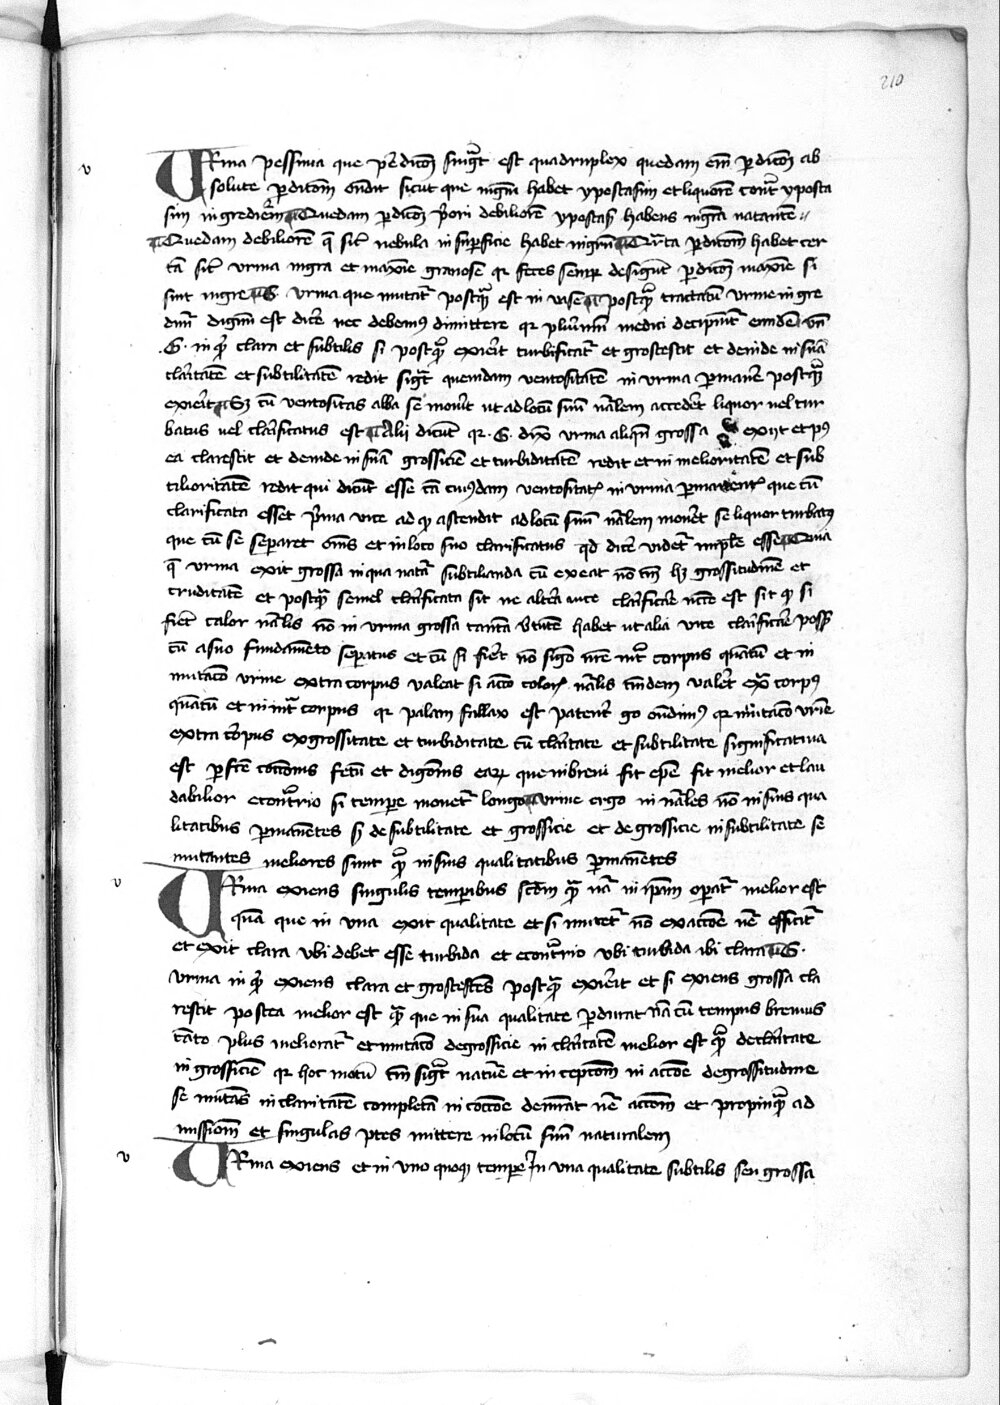 210
v
URina pessima que perdicōēs signīt est quadruplex quedam em̄ perdicōēs ab
solute perditōm ondit sicut que nigrā habet ypostasim et liquorē contr̄ yposta
sim ingredien̄ Quedam perdicōēs p̄ori debiliorē ypostas̄ habens nigrā natantē
Quedam debiliorē q̄ sic̄ nebula in superficie habet nigrū Qr̄ta perditōm habet cer
tā sic̄ urina nigra et maxīe granose qr feces semp̄ designt̄ perdicōēs maxīe si
sint nigre G. urina que mutat̄ postq̄ est in vise postq̄ tractatū urine nigre
dinīs dignū est dic̄e nec debem9 dimittere qr plurimi medici decipiūt̄ eiusdē un̄
.G. in p̄ clara et subtilis si postq̄ exierit turbificat̄ et grossescit et deinde in suā
claritatē et subtilitatē redit signt̄ quendam ventositatē in urina permanē postq̄
exierit Sz cū ventositas alba se monēt ut ad locū suū nālem acceder̄ liquor vel tur
batus vel clarificatus est Alii dicūt qr .G. dix̄ urina aliqn̄ grossa exiit et p9
ea clarescit et deinde in suā grossiciē et turbiditatē redit et in melioritatē et sub
tilioritatē redit qui dicūt esse cā cuiusdam ventositat̄ in urina permanent̄ que cū
clarificata esset p̄ma vice ad qd ascendit ad locū suū nālem monēt se liquor turbatus
que cū se separet om̄s et in loco suo clarificatus qd dic̄e videt̄ impl̄e esse Quia
q̄ urina exit grossa in qua nat̄a subtilianda cū exeat nō tm̄ hz grossitudinē et
cruditatē et postq̄ semel clarificata sit ne altera vice clarificare nc̄e est sit qd si
fiet̄ calor nālis nō in urina grossa tantā v̄tutē habet ut alia vice clarificare poss̄
cū a suo fundamēto separatus et cū si fiet̄ nō sigō nr̄e intr̄ corpus quātū et in
mutacōe urine extra corpus valeat si actō calor̄ nālis tādem valet̄ extr̄ corp9
quātū et in intr̄ corpus qr palam fallax est patent̄ go ondim9 qr mutacō urīe
extra corpus ex grossitate et turbiditate cū claritate et subtilitate significatiua
est perfc̄e coctionis fetū et digōnis earz que in breui fit ep̄e fit melior et lau
dabilior econtrario si tempere monet̄ longo urine ergo in nāles nō in suis qua
litatibus permanētes sz de subtilitate et grossicie et de grossicie in subtilitate se
mutantes meliores sunt q̄ in suis qualitatibus permanētes
v
URina exiens singulis temperibus scd̄m q̄ nā in ip̄am operat̄ melior est
quā que in una exit qualitate et si mutet̄ nō ex actōe nē efficit̄
et exit clara ubi debet esse turbida et econtrario ubi turbida ibi clara G.
urina in p̄ exiens clara et grossescēs postq̄ exierit et si exiens grossa cla
rescit postea melior est q̄ que in sua qualitate perdurat nā cū tempus breuius
tāto plus meliorat̄ et mutacō de grossicie in claritatē melior est q̄ de claritate
in grossiciē qr hoc motū tm̄ signt̄ nature et inceptōm in actōe de grossitudine
se mutās in claritatē completā in coctōe denūat nē actōm et propinq̄ ad
missiōm et singulas ptes mittere in locū suū naturalem
v
URina exiens et in uno quoqz tempere In una qualitate subtilis seu grossa